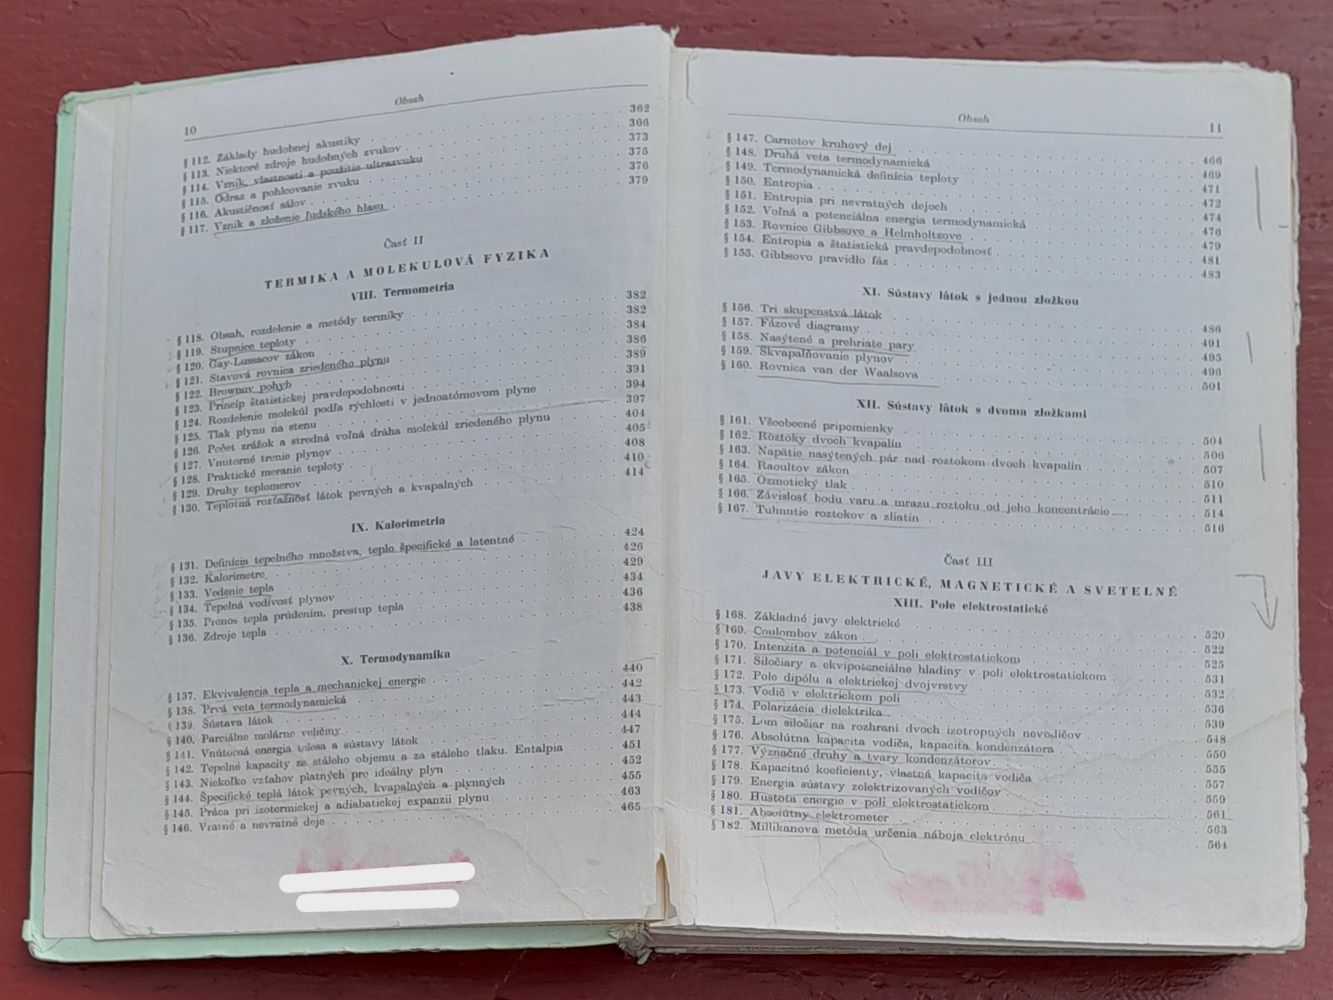 10 Obsah
§ 112. Základy hudobnej akustiky 362
§ 113. Niektoré zdroje hudobných zvukov 366
§ 114. Vznik, vlastnosti a použitie ultrazvuku 373
§ 115. Odraz a pohlcovanie zvuku 375
§ 116. Akustičnosť sálov 376
§ 117. Vznik a zloženie ľudského hlasu 379
Časť II
TERMIKA A MOLEKULOVÁ FYZIKA
VIII. Termometria
§ 118. Obsah, rozdelenie a metódy termiky 382
§ 119. Stupnice teploty 382
§ 120. Gay-Lussacov zákon 384
§ 121. Stavová rovnica zriedeného plynu 386
§ 122. Brownov pohyb 389
§ 123. Princíp štatistickej pravdepodobnosti 391
§ 124. Rozdelenie molekúl podľa rýchlosti v jednoatómovom plyne 394
§ 125. Tlak plynu na stenu 397
§ 126. Počet zrážok a stredná voľná dráha molekúl zriedeného plynu 404
§ 127. Vnútorné trenie plynov 405
§ 128. Praktické meranie teploty 408
§ 129. Druhy teplomerov 410
§ 130. Teplotná rozťažnosť látok pevných a kvapalných 414
IX. Kalorimetria
§ 131. Definícia tepelného množstva, teplo špecifické a latentné 424
§ 132. Kalorimetre 426
§ 133. Vedenie tepla 429
§ 134. Tepelná vodivosť plynov 434
§ 135. Prenos tepla prúdením, prestup tepla 436
§ 136. Zdroje tepla 438
X. Termodynamika
§ 137. Ekvivalencia tepla a mechanickej energie 440
§ 138. Prvá veta termodynamická 442
§ 139. Sústava látok 443
§ 140. Parciálne molárne veličiny 444
§ 141. Vnútorná energia telesa a sústavy látok 447
§ 142. Tepelné kapacity za stáleho objemu a za stáleho tlaku. Entalpia 451
§ 143. Niekoľko vzťahov platných pre ideálny plyn 452
§ 144. Špecifické teplá látok pevných, kvapalných a plynných 455
§ 145. Práca pri izotermickej a adiabatickej expanzii plynu 463
§ 146. Vratné a nevratné deje 465
Obsah 11
§ 147. Carnotov kruhový dej 466
§ 148. Druhá veta termodynamická 469
§ 149. Termodynamická definícia teploty 471
§ 150. Entropia 472
§ 151. Entropia pri nevratných dejoch 474
§ 152. Voľná a potenciálna energia termodynamická 476
§ 153. Rovnice Gibbsove a Helmholtzove 479
§ 154. Entropia a štatistická pravdepodobnosť 481
§ 155. Gibbsovo pravidlo fáz 483
XI. Sústavy látok s jednou zložkou
§ 156. Tri skupenstvá látok 486
§ 157. Fázové diagramy 491
§ 158. Nasýtené a prehriate pary 495
§ 159. Skvapalňovanie plynov 496
§ 160. Rovnica van der Waalsova 501
XII. Sústavy látok s dvoma zložkami
§ 161. Všeobecné pripomienky 504
§ 162. Roztoky dvoch kvapalín 506
§ 163. Napätie nasýtených pár nad roztokom dvoch kvapalín 507
§ 164. Raoultov zákon 510
§ 165. Ozmotický tlak 511
§ 166. Závislosť bodu varu a mrazu roztoku od jeho koncentrácie 514
§ 167. Tuhnutie roztokov a zliatin 516
Časť III
JAVY ELEKTRICKÉ, MAGNETICKÉ A SVETELNÉ
XIII. Pole elektrostatické
§ 168. Základné javy elektrické 520
§ 169. Coulombov zákon 522
§ 170. Intenzita a potenciál v poli elektrostatickom 525
§ 171. Siločiary a ekvipotenciálne hladiny v poli elektrostatickom 531
§ 172. Pole dipólu a elektrickej dvojvrstvy 532
§ 173. Vodič v elektrickom poli 536
§ 174. Polarizácia dielektrika 539
§ 175. Lom siločiar na rozhraní dvoch izotropných nevodičov 548
§ 176. Absolútna kapacita vodiča, kapacita kondenzátora 550
§ 177. Význačné druhy a tvary kondenzátorov 555
§ 178. Kapacitné koeficienty, vlastná kapacita vodiča 557
§ 179. Energia sústavy zelektrizovaných vodičov 559
§ 180. Hustota energie v poli elektrostatickom 561
§ 181. Absolútny elektrometer 563
§ 182. Millikanova metóda určenia náboja elektrónu 564